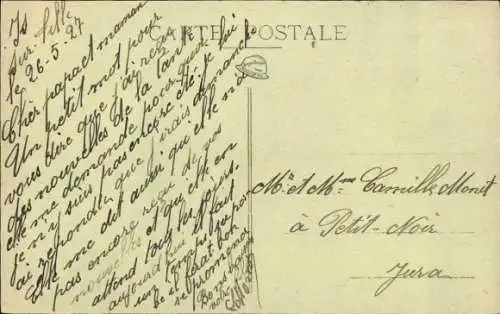 CARTE POSTALE
Is
sur-Tille
le 26-5-27
Cher papa et maman
Un petit mot pour
vous dire que j'ai reçu
des nouvelles de la tante
elle me demande pourquoi
je n'y suis pas encore été je lui
ai répondu que j'irais dimanche
elle me dit aussi qu'elle n'a
pas encore reçu de vos
nouvelles et qu'elle en
attend tout les jours.
aujourd'hui il fait
un temps
il ferait bon
se promener
Mr et Mme Camille Monit
à Petit-Noir
Jura